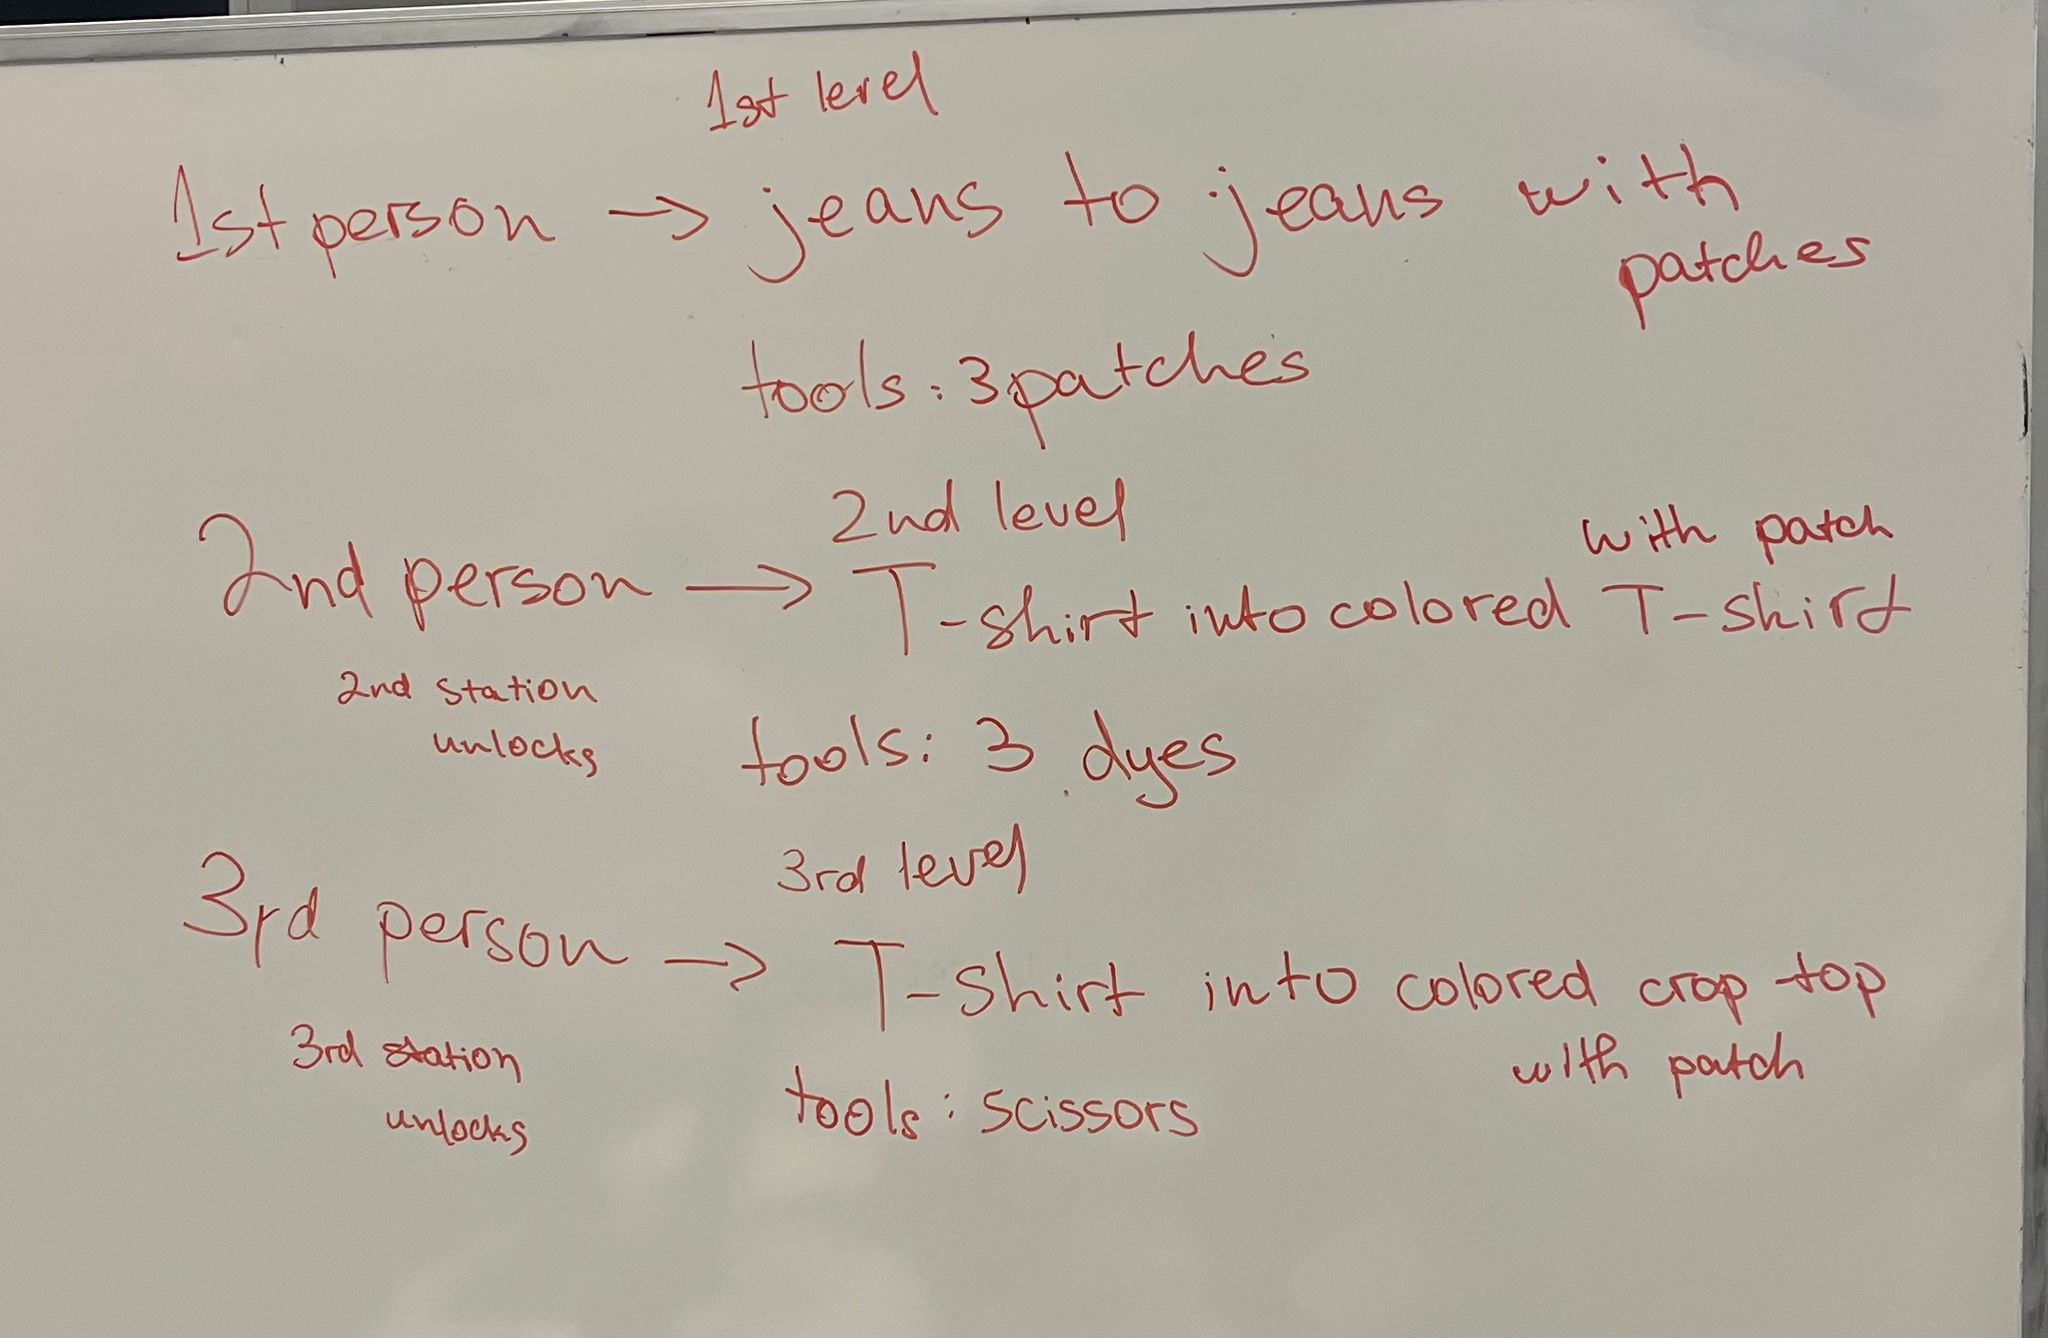 1st level
1st person → jeans to jeans with
patches
tools: 3 patches
2nd level
with patch
2nd person → T-shirt into colored T-shirt
2nd station
unlocks
tools: 3 dyes
3rd level
3rd person → T-shirt into colored crop top
with patch
3rd station
unlocks
tools: scissors